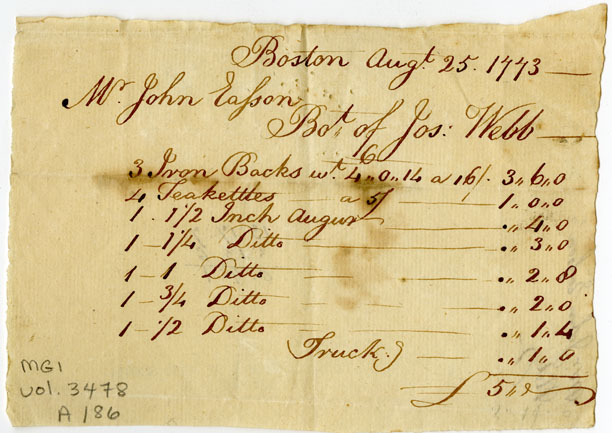 Boston Augt. 25. 1773 —
Mr John Easson
Bot. of Jos: Webb —
3 Iron Backs wt. 4,,0,,14 a 16/. 3,,6,,0
4 Teakettles — a 5/ — 1,,0,,0
1 . 1/2 Inch augur — ,,4,,0
1 – 1/4 Ditto — ,,3,,0
1 – 1 Ditto — ,,2,,8
1 – 3/4 Ditto — ,,2,,0
1 – 1/2 Ditto — ,,1,,4
Truck — ,,1,,0
£ 5,,0
MG1
vol. 3478
A 186